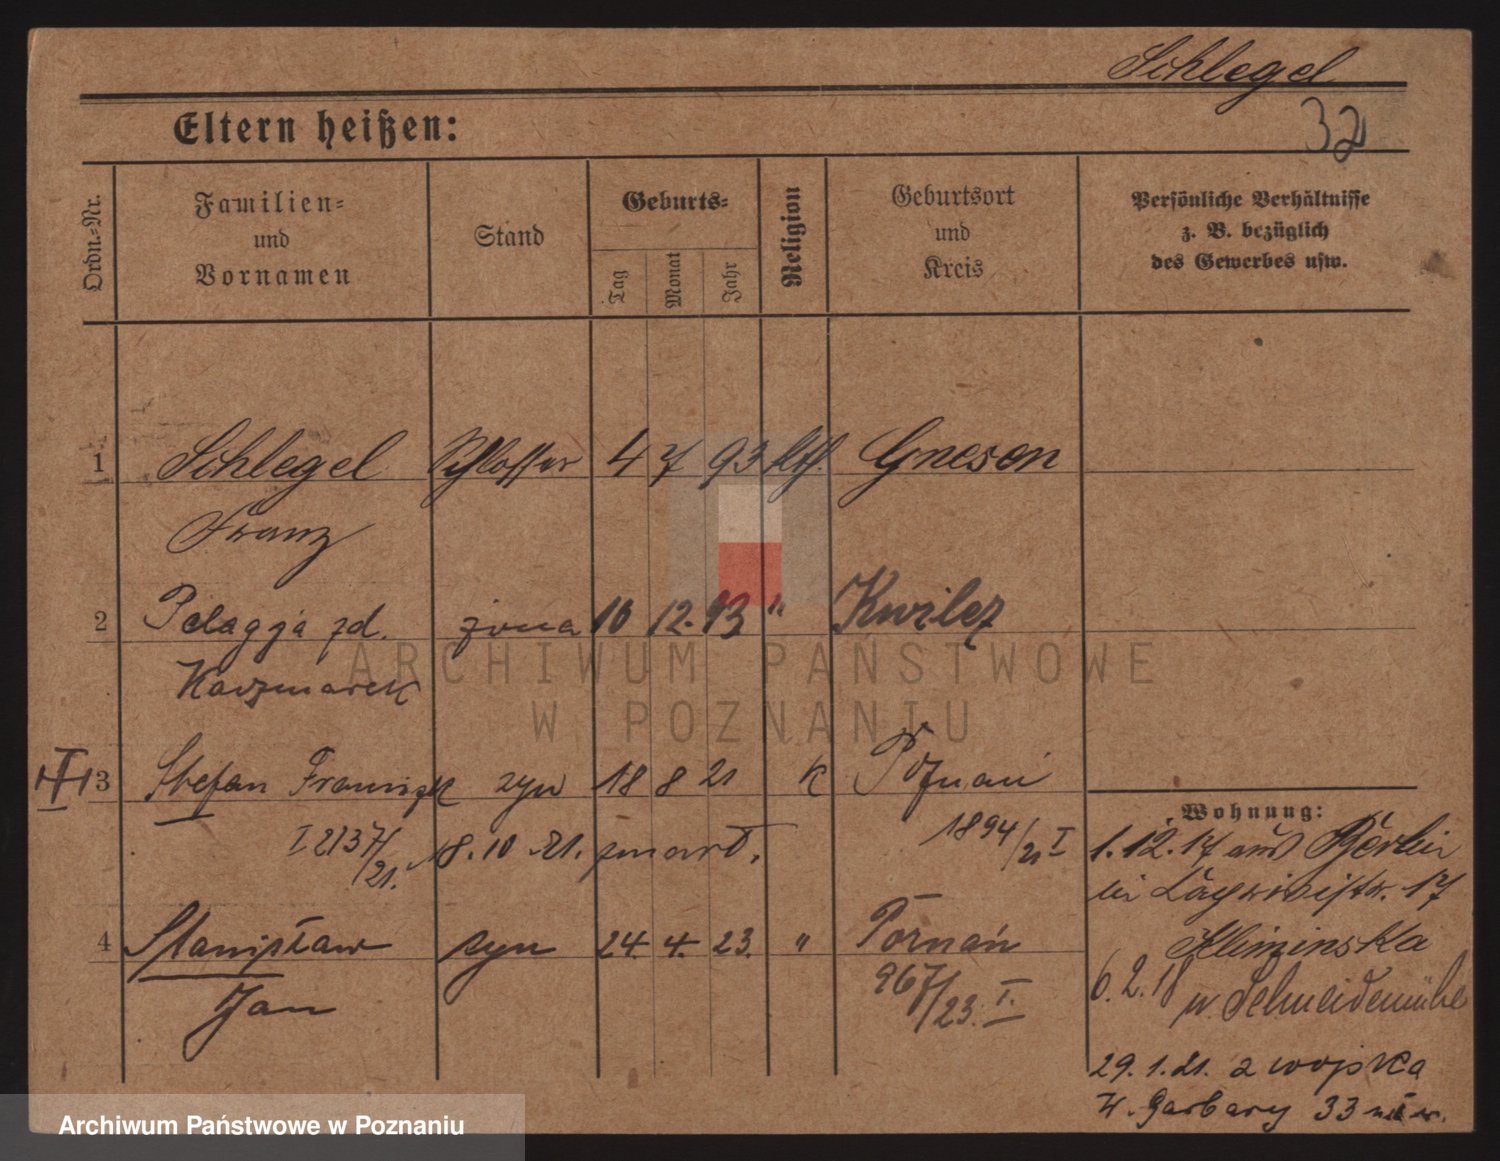 Schlegel
Eltern heißen:
32
Ordn.-Nr.
Familien-
und
Vornamen
Stand
Geburts-
Tag
Monat
Jahr
Religion
Geburtsort
und
Kreis
Persönliche Verhältnisse
z. B. bezüglich
des Gewerbes usw.
1 Schlegel Schlosser 4 7 93 kth. Gnesen
Franz
2 Pelagja zd. żona 10 12. 93 " Kwilcz
Kaczmarek
3 Stefan Franciszek syn 18 8 21 K Poznań
I 2137/21. 18.10.21. zmarł. 1894/21 I
4 Stanisław syn 24. 4. 23. " Poznań
Jan 967/23. I.
Wohnung:
1.12.17 aus Berlin
17
6.2.18 n. Schneidemühl
29.1.21. z wojska
W. Garbary 33
ARCHIWUM PAŃSTWOWE
W POZNANIU
Archiwum Państwowe w Poznaniu